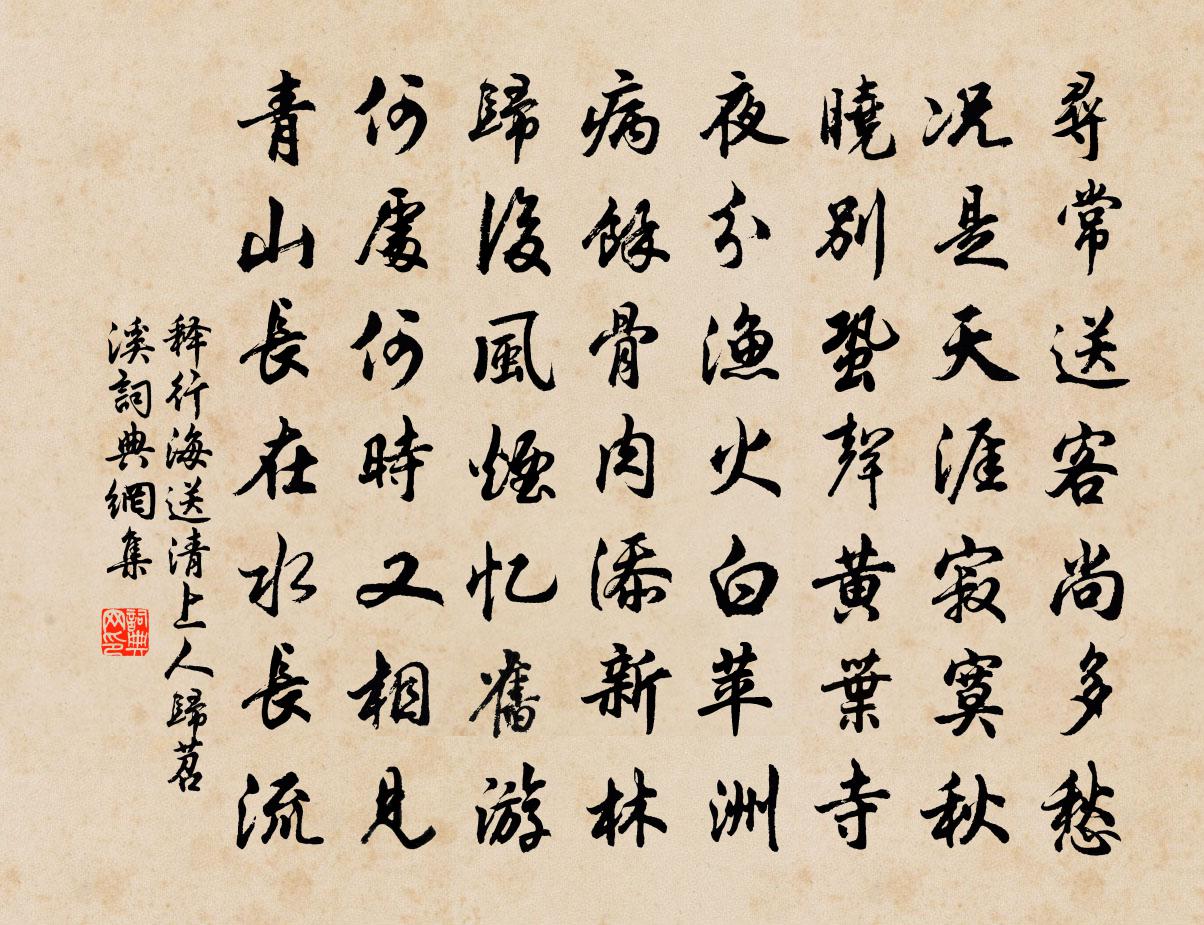 尋常送客尚多愁
况是天涯寂寞秋
曉別蛩聲黃葉寺
夜分漁火白苹洲
病餘骨肉添新林
歸後風煙忆舊游
何處何時又相見
青山長在水長流
释行海送清上人歸苕
溪詞典網集
詞典网印